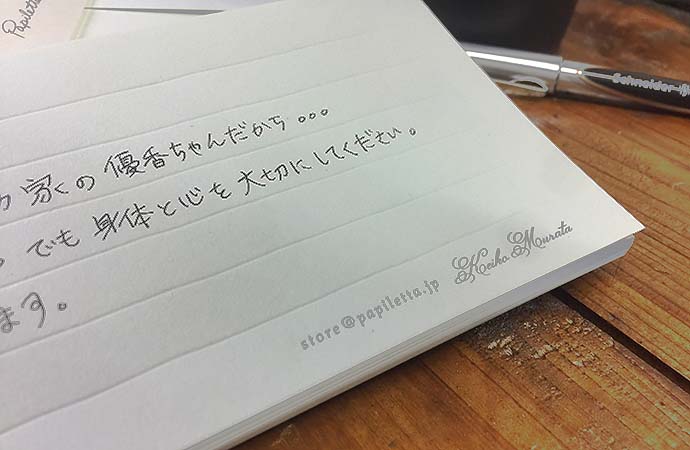 Papiletta
Schneider
家の優香ちゃんだから。。。
でも身体と心を大切にしてください。
ます。
Keiko Murata
store@papiletta.jp